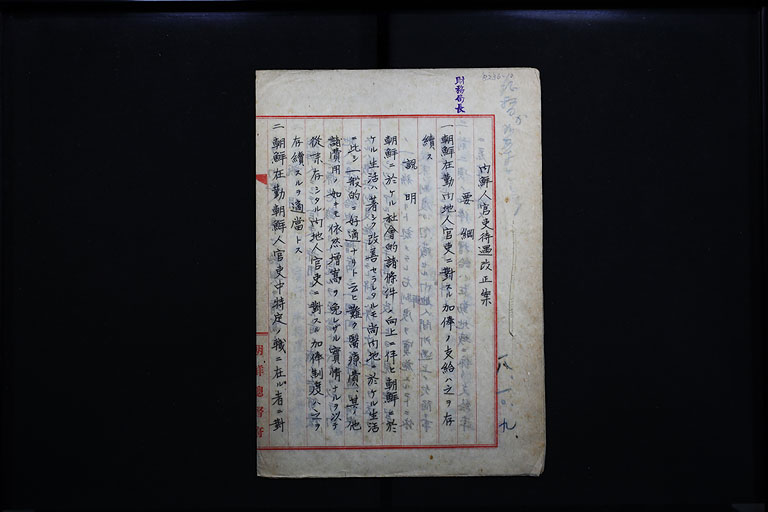 財務局長
内鮮人官吏待遇改正案
要綱
一朝鮮在勤内地人官吏ニ對スル加俸ノ支給ハ之ヲ存
續ス
説明
朝鮮ニ於ケル社會的諸條件ノ向上ニ伴ヒ朝鮮ニ於
ケル生活ハ著シク改善セラレタルモ尚内地ニ於ケル生活
ニ比シ一般的ニ好適ナリト云ヒ難ク醫療費、其ノ他
諸費用ノ如キモ依然增嵩ヲ免レザル實情ナルヲ以テ
從來存シタル内地人官吏ニ對スル加俸制度ハ之ヲ
存續スルヲ適當トス
二朝鮮在勤朝鮮人官吏中特定ノ職ニ在ル者ニ對
朝鮮總督府